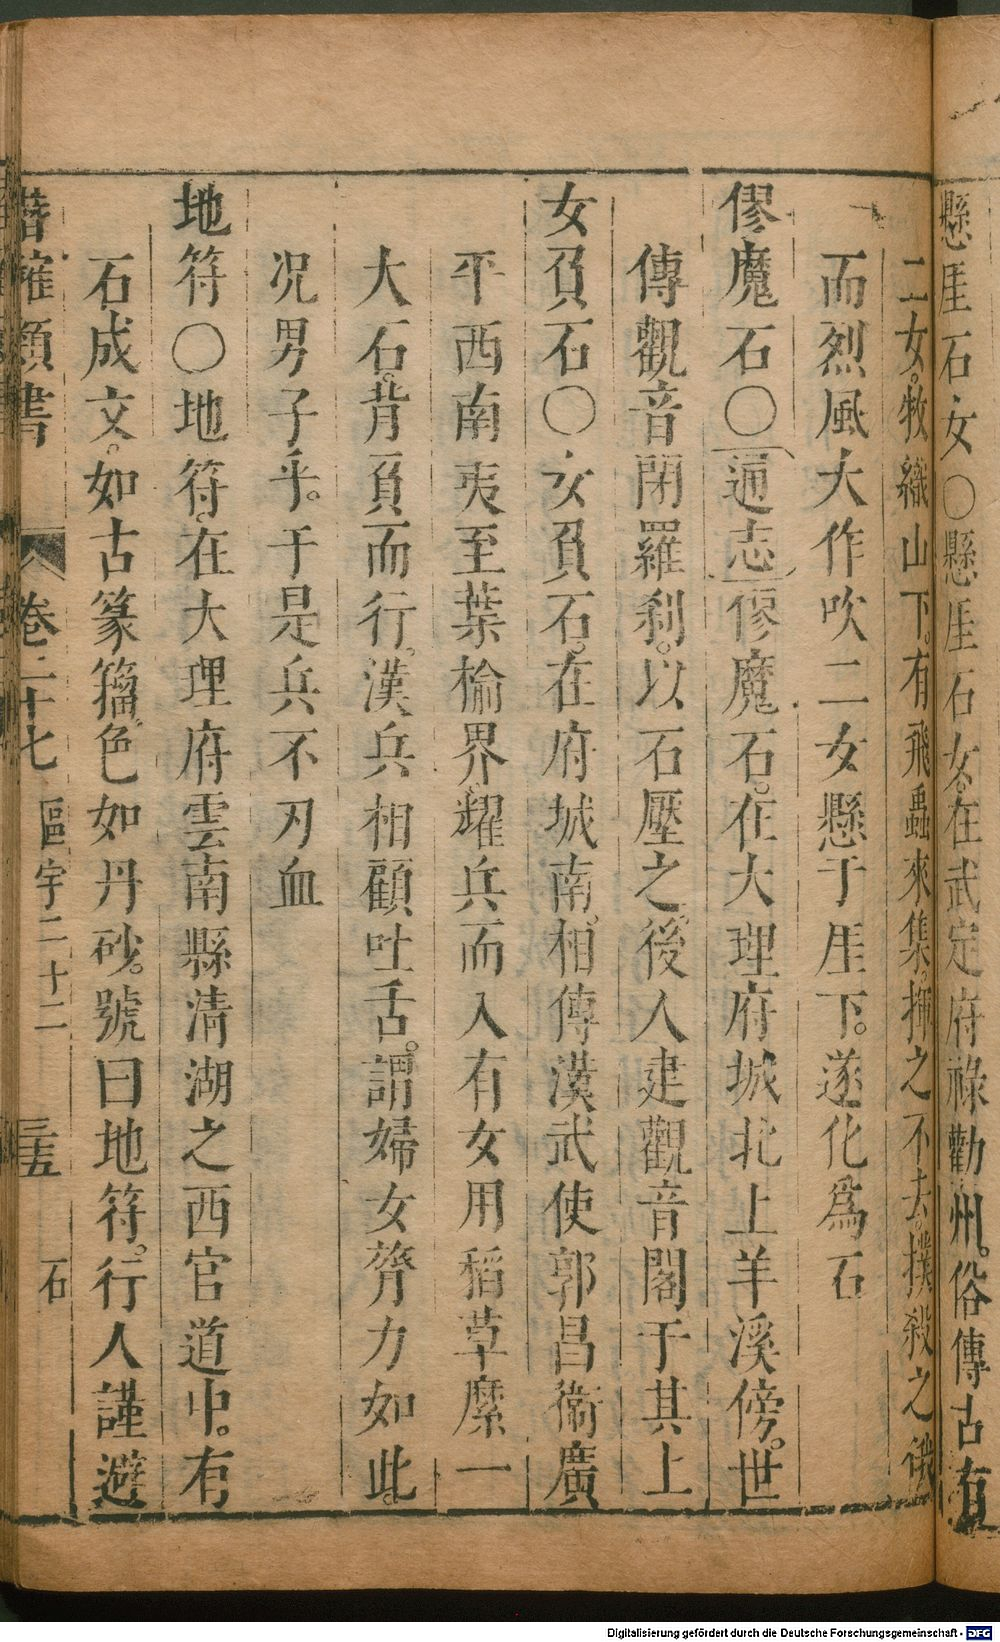 懸厓石女〇懸厓石女在武定府祿勸州俗傳古有
二女牧織山下有飛蟲來集揮之不去撲殺之俄
而烈風大作吹二女懸于厓下遂化爲石
僇魔石〇通志僇魔石在大理府城北上羊溪傍世
傳觀音閉羅刹以石壓之後人建觀音閣于其上
女負石〇女負石在府城南相傳漢武使郭昌衞廣
平西南夷至葉榆界耀兵而入有女用稻草縻一
大石背負而行漢兵相顧吐舌謂婦女膂力如此
况男子乎于是兵不刃血
地符〇地符在大理府雲南縣清湖之西官道中有
石成文如古篆籀色如丹砂號曰地符行人謹避
潛確類書 卷二十七 區宇二十二 三五 石
Digitalisierung gefördert durch die Deutsche Forschungsgemeinschaft - DFG